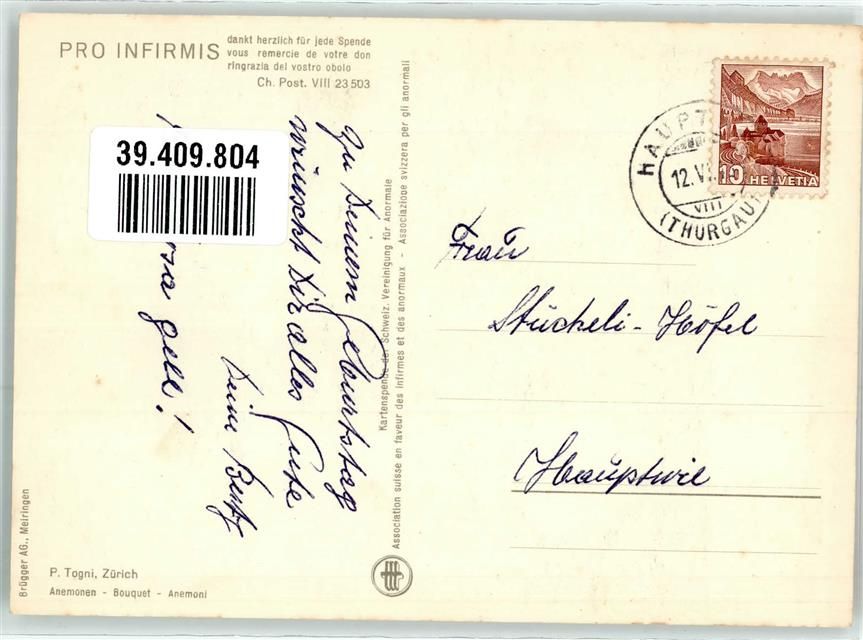 PRO INFIRMIS
dankt herzlich für jede Spende
vous remercie de votre don
ringrazia del vostro obolo
Ch. Post. VIII 23 503
39.409.804
Zu Deinem Geburtstag
wünscht Dir alles Gute
Dein
gell!
Kartenspende der Schweiz. Vereinigung für Anormale
Association suisse en faveur des infirmes et des anormaux - Associazione svizzera per gli anormali
HAUPT
12.V
VIII
(THURGAU)
10 HELVETIA
Frau
Stückeli-Höfel
Hauptwil
Brügger AG., Meiringen
P. Togni, Zürich
Anemonen - Bouquet - Anemoni